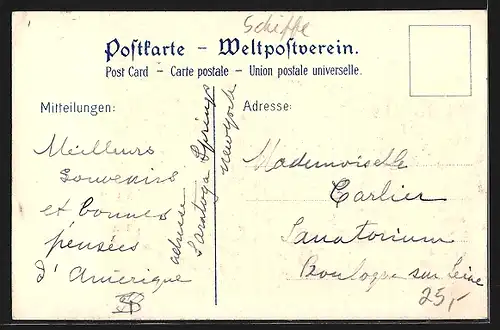 Schiffe
Postkarte – Weltpostverein.
Post Card – Carte postale – Union postale universelle.
Mitteilungen:
Adresse:
Meilleurs
Souvenirs
et bonnes
pensées
d'Amérique
adresse
Saratoga Springs
New York
Mademoiselle
Carlier
Sanatorium
Boulogne sur Seine
25,-